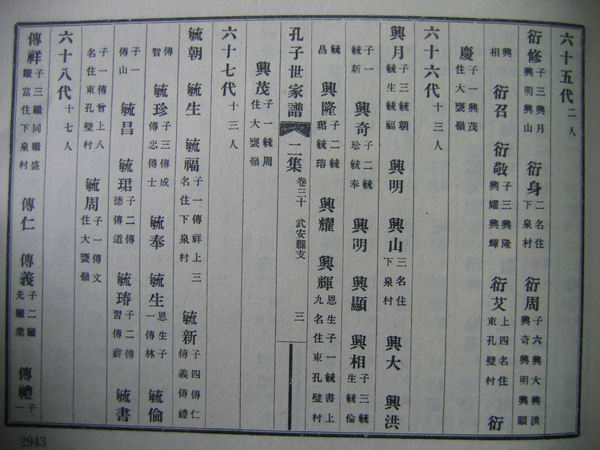 六十五代 二人
衍修 子三興月興明興山 衍身 二名住下泉村 衍周 子六興大興洪興奇興明興顯
興相 衍召 衍敬 子三興隆興耀興輝 衍艾 上四名住東孔壁村 衍
慶 子一興茂住大甕嶺
六十六代 十三人
興月 子三毓朝毓生毓福 興明 興山 三名住下泉村 興大 興洪
子一毓新 興奇 子二毓珍毓奉 興明 興顯 興相 子三毓生毓倫
毓昌 興隆 子二毓珺毓璿 興耀 興輝 恩生子一毓書上九名住東孔壁村
孔子世家譜 二集 卷三十 武安縣支 三
興茂 子一毓周住大甕嶺
六十七代 十三人
毓朝 毓生 毓福 子一傳祥上三名住下泉村 毓新 子四傳仁傳義傳禮
傳智 毓珍 子三傳成傳忠傳士 毓奉 毓生 恩生子一傳林 毓倫
子一傳山 毓昌 毓珺 子二傳德傳道 毓璿 子二傳習傳薪 毓書
子一傳曾上八名住東孔壁村 毓周 子一傳文住大甕嶺
六十八代 十七人
傳祥 子三繼同繼盛繼富住下泉村 傳仁 傳義 子二繼先繼業 傳禮 子一
2943